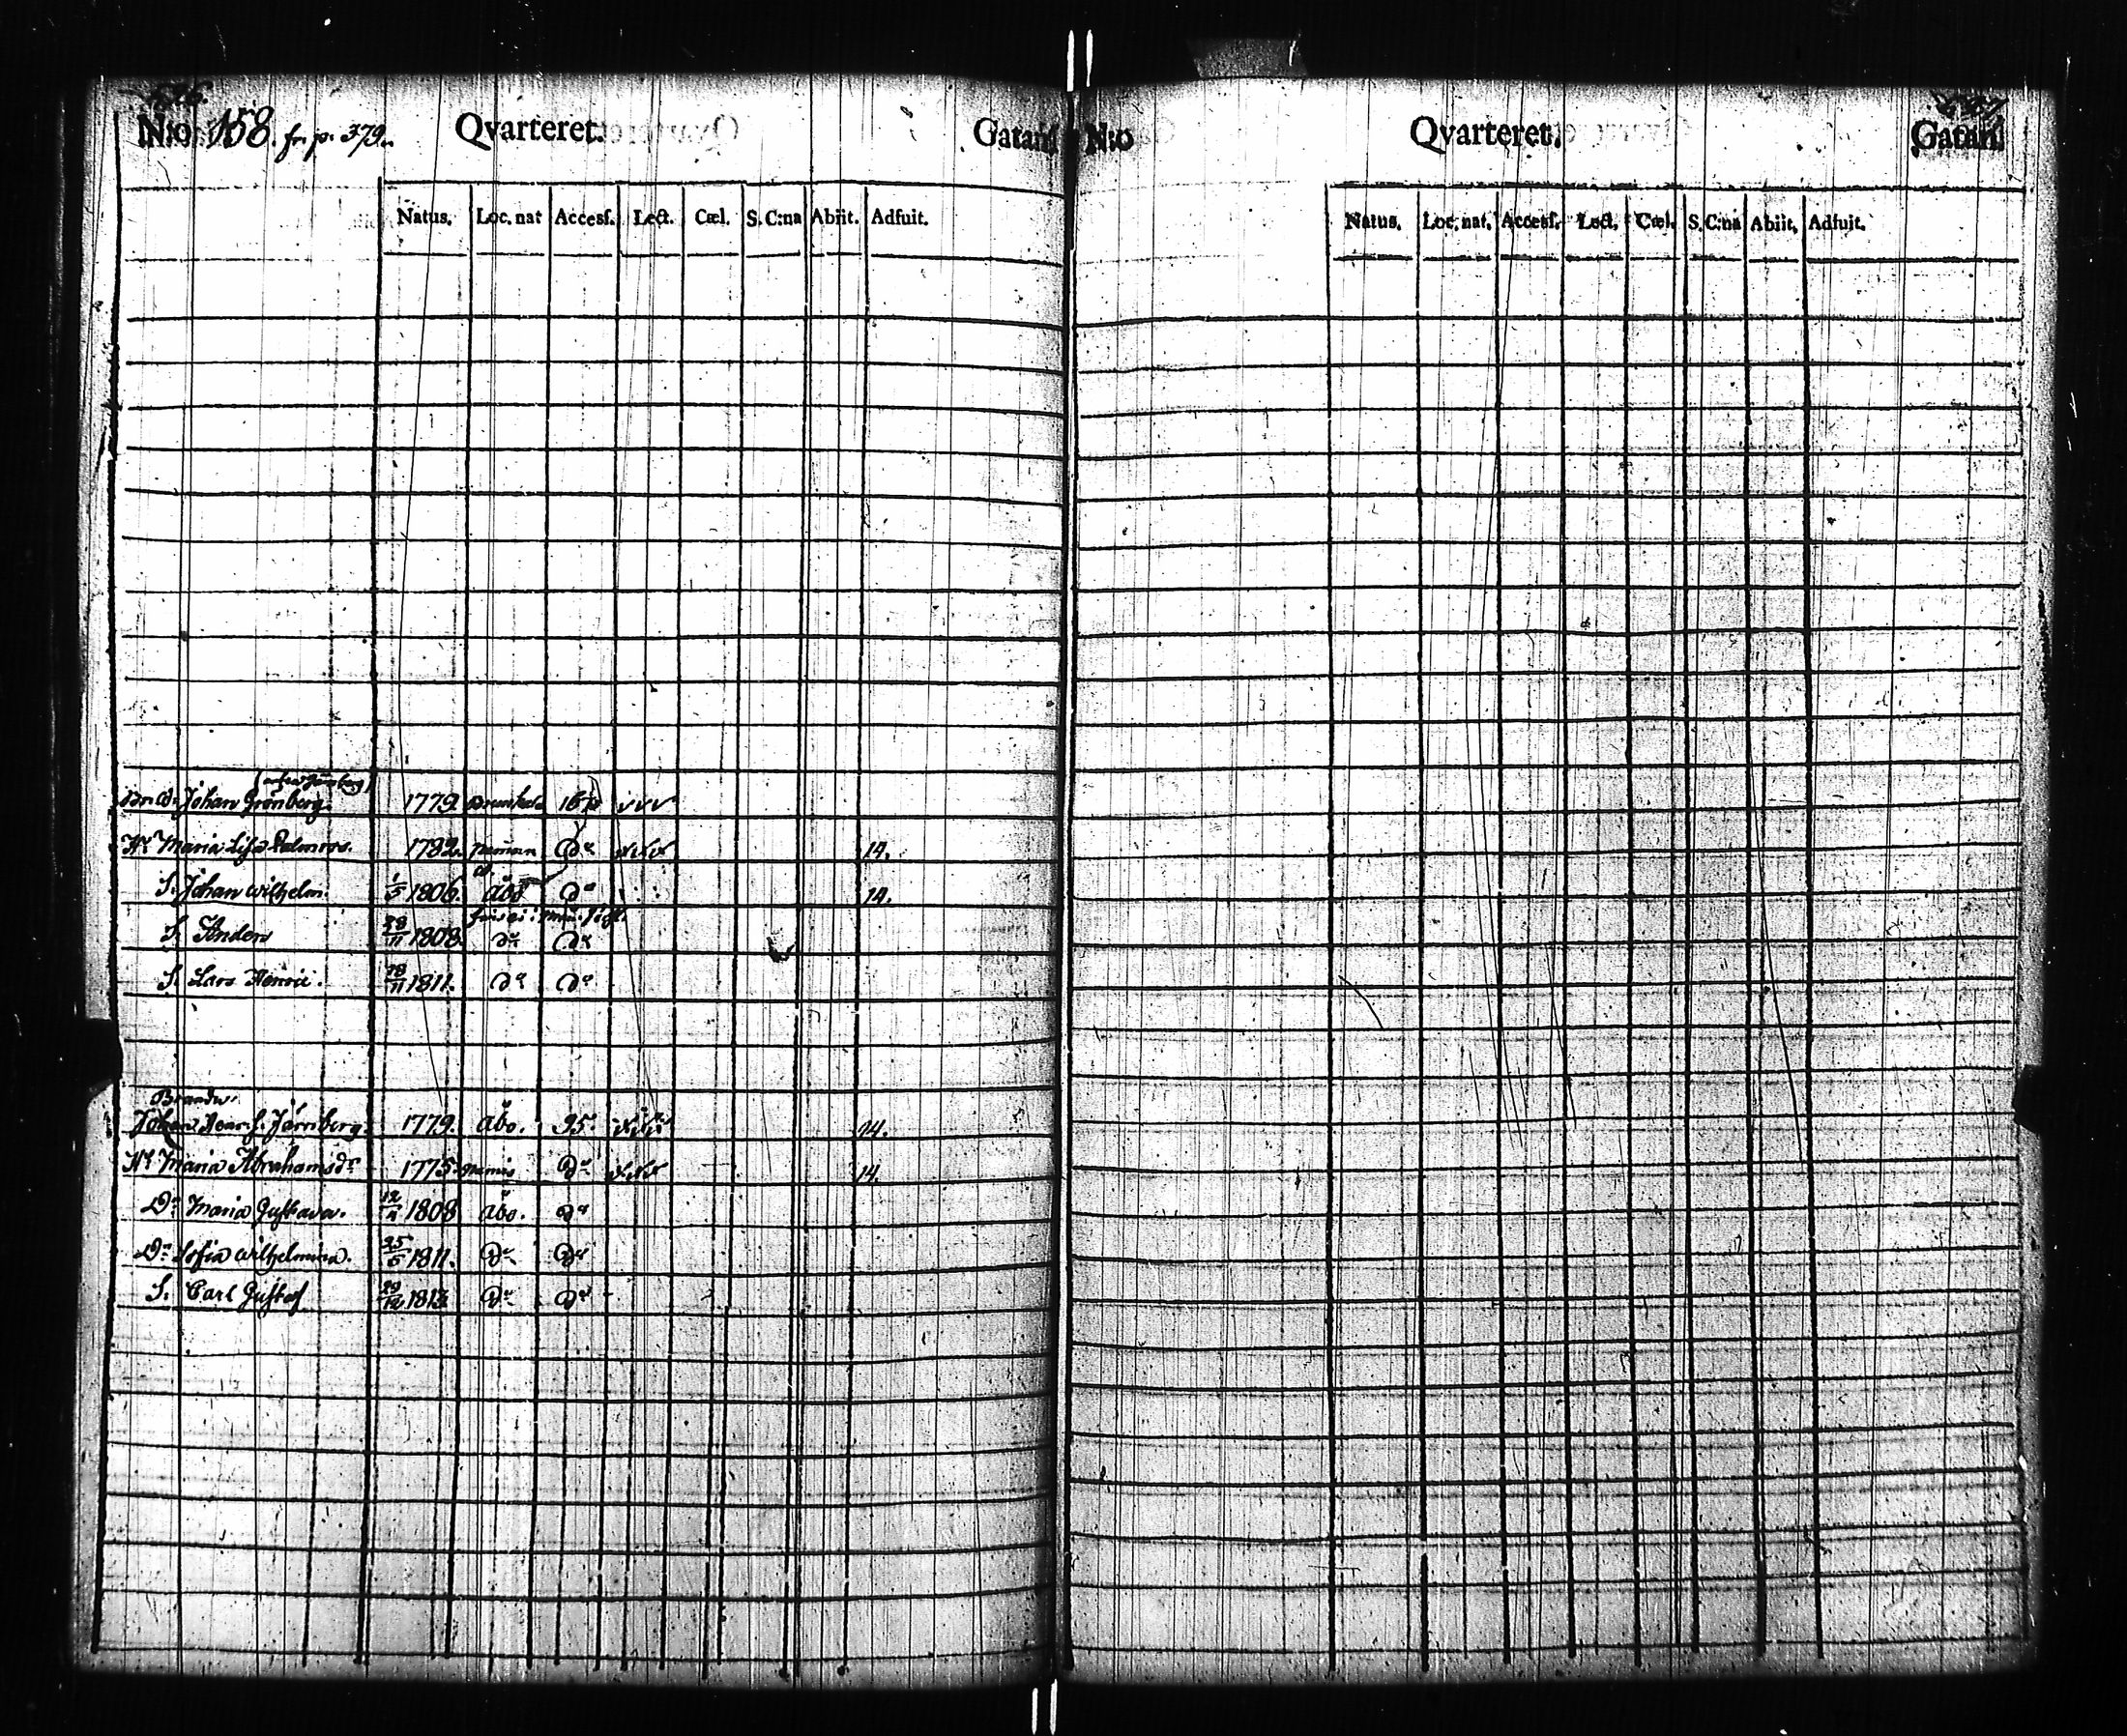 N:o 158. fr. p. 379. Qvarteret. Gatan.
Natus. Loc. nat Accesf. Lect. Cæl. S. C:na Abiit. Adfuit.
Johan Grönberg. 1779. vvv
Hu Maria Lisa Palmros. 1782. Do 14.
S. Johan Wilhelm. 1/5 1806. Åbo Do 14.
S. Anders 28/11 1808. Do Do
S. Lars Henric. 18/11 1811. Do Do
Brandv.
Johan Henr. Järnberg. 1779. Åbo. 95. 14.
Hu Maria Abrahamsdr 1775. Do 14.
Dr Maria Gustava. 12/4 1808 Åbo. Do
Dr Sofia Wilhelmina. 25/5 1811. Do Do
S. Carl Gustaf 1813 Do Do
N:o Qvarteret. Gatan.
Natus. Loc. nat. Accesf. Lect. Cæl. S. C:na Abiit. Adfuit.